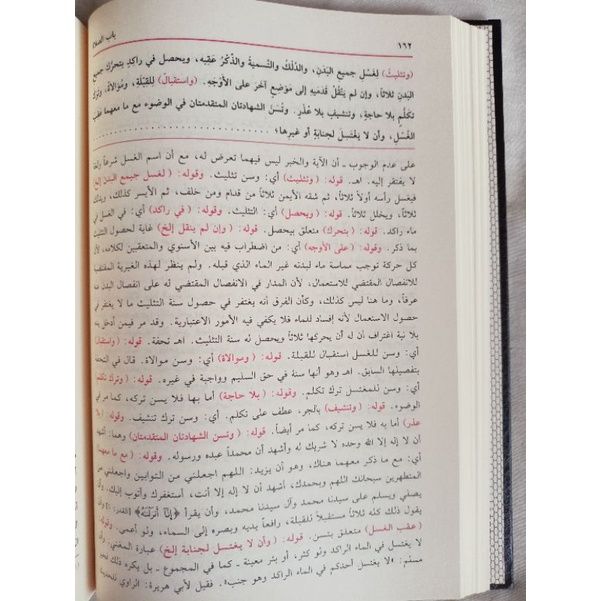 ١٦٢
باب الصلاة
(وتثليث) لغسل جميع البدن، والدلك والتسمية والذكر عقبه، ويحصل في راكد بتحرك جميع
البدن ثلاثاً، وإن لم ينقل قدميه إلى موضع آخر على الأوجه. (واستقبال) للقبلة، وموالاة، وترك
تكلم بلا حاجة، وتنشيف بلا عذر. وتسن الشهادتان المتقدمتان في الوضوء مع ما معهما عقب
الغسل، وأن لا يغتسل لجنابة أو غيرها؛
على عدم الوجوب ـ أن الآية والخبر ليس فيهما تعرض له، مع أن اسم الغسل شرعاً
لا يفتقر إليه. اهـ. قوله: (وتثليث) أي: وسن تثليث. وقوله: (لغسل جميع البدن إلخ)
فيغسل رأسه أولاً ثلاثاً، ثم شقه الأيمن ثلاثاً من قدام ومن خلف، ثم الأيسر كذلك،
ثلاثاً، ويخلل ثلاثاً. قوله: (ويحصل) أي: التثليث. وقوله: (في راكد) أي: في الغسل في
ماء راكد. قوله: (بتحرك) متعلق بيحصل. قوله: (وإن لم ينقل إلخ) غاية لحصول التثليث
بما ذكر. وقوله: (على الأوجه) أي: من اضطراب فيه بين الأسنوي والمتعقبين لكلامه، لأن
كل حركة توجب مماسة ماء لبدنه غير الماء الذي قبله. ولم ينظر لهذه الغيرية المقتضية
للانفصال المقتضي للاستعمال، لأن المدار في الانفصال المقتضي له على انفصال البدن عنه
عرفاً، وما هنا ليس كذلك، وكأن الفرق أنه يغتفر في حصول سنة التثليث ما لا يغتفر في
حصول الاستعمال لأنه إفساد للماء فلا يكفي فيه الأمور الاعتبارية. وقد مر فيمن أدخل يده
بلا نية اغتراف أن له أن يحركها ثلاثاً ويحصل له سنة التثليث. اهـ تحفة. قوله: (واستقبال)
أي: وسن للغسل استقبال للقبلة. قوله: (وموالاة) أي: وسن موالاة. قال في التحفة
بتفصيلها السابق. اهـ وهو أنها سنة في حق السليم وواجبة في غيره. قوله: (وترك تكلم)
أي: وسن للمغتسل ترك تكلم. وقوله: (بلا حاجة) أما بها فلا يسن تركه، كما مر في
الوضوء. قوله: (وتنشيف) بالجر، عطف على تكلم. أي: وسن ترك تنشيف. وقوله: (بلا
عذر) أما به فلا يسن تركه، كما مر أيضاً. قوله: (وتسن الشهادتان المتقدمتان) وهما: أشهد
أن لا إله إلا الله وحده لا شريك له وأشهد أن محمداً عبده ورسوله. قوله: (مع ما معهما)
أي: مع ما ذكر معهما هناك، وهو أن يزيد: اللهم اجعلني من التوابين واجعلني من
المتطهرين سبحانك اللهم وبحمدك، أشهد أن لا إله إلا أنت، أستغفرك وأتوب إليك،
يصلي ويسلم على سيدنا محمد وآل سيدنا محمد، وأن يقرأ ﴿إنا أنزلناه﴾
يقول ذلك كله ثلاثاً مستقبلاً للقبلة، رافعاً يديه وبصره إلى السماء، ولو أعمى. وقوله:
(عقب الغسل) متعلق بتسن. قوله: (وأن لا يغتسل لجنابة إلخ) عبارة المغني:
لا يغتسل في الماء الراكد ولو كثر، أو بئر معينة ـ كما في المجموع ـ بل يكره ذلك لخبر
مسلم: «لا يغتسل أحدكم في الماء الراكد وهو جنب». فقيل لأبي هريرة: الراوي للحديث